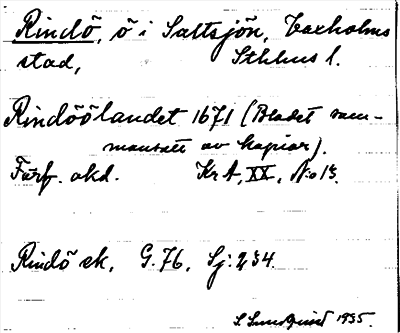 Rindö, ö i Saltsjön, Vaxholms
stad, Sthlms l.
Rindöölandet 1671 (Bladet sam-
mansatt av kopior).
Förf. okd. Kr A, XX, No 13.
Rindö ek, G. 76, Sj: 234.
S. Sundquist 1935.